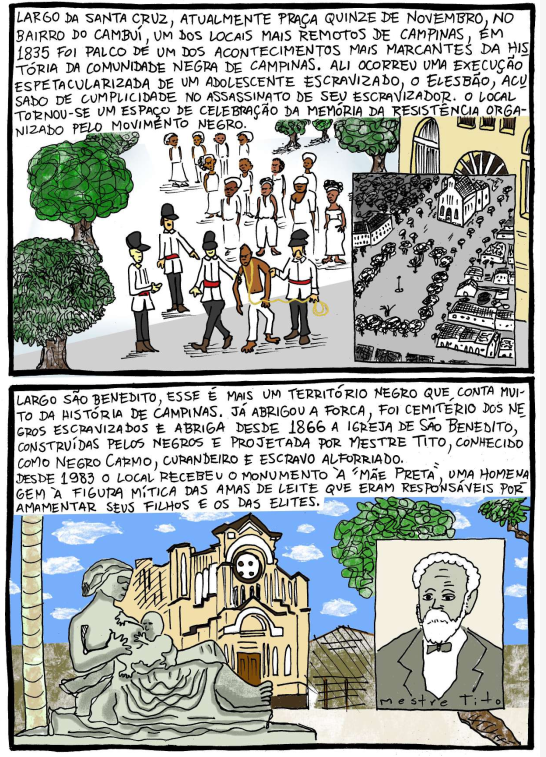 LARGO DA SANTA CRUZ, ATUALMENTE PRAÇA QUINZE DE NOVEMBRO, NO
BAIRRO DO CAMBUÍ, UM DOS LOCAIS MAIS REMOTOS DE CAMPINAS, EM
1835 FOI PALCO DE UM DOS ACONTECIMENTOS MAIS MARCANTES DA HIS
TÓRIA DA COMUNIDADE NEGRA DE CAMPINAS. ALI OCORREU UMA EXECUÇÃO
ESPETACULARIZADA DE UM ADOLESCENTE ESCRAVIZADO, O ELESBÃO, ACU
SADO DE CUMPLICIDADE NO ASSASSINATO DE SEU ESCRAVIZADOR. O LOCAL
TORNOU-SE UM ESPAÇO DE CELEBRAÇÃO DA MEMÓRIA DA RESISTÊNCIA ORGA-
NIZADO PELO MOVIMENTO NEGRO.
LARGO SÃO BENEDITO, ESSE É MAIS UM TERRITÓRIO NEGRO QUE CONTA MUI-
TO DA HISTÓRIA DE CAMPINAS. JÁ ABRIGOU A FORCA, FOI CEMITÉRIO DOS NE
GROS ESCRAVIZADOS E ABRIGA DESDE 1866 A IGREJA DE SÃO BENEDITO,
CONSTRUÍDAS PELOS NEGROS E PROJETADA POR MESTRE TITO, CONHECIDO
COMO NEGRO CARMO, CURANDEIRO E ESCRAVO ALFORRIADO.
DESDE 1983 O LOCAL RECEBEU O MONUMENTO À "MÃE PRETA", UMA HOMENA
GEM À FIGURA MÍTICA DAS AMAS DE LEITE QUE ERAM RESPONSÁVEIS POR
AMAMENTAR SEUS FILHOS E OS DAS ELITES.
mestre Tito